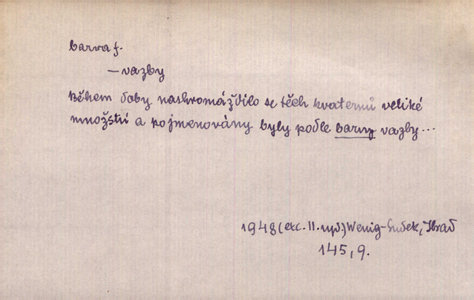 barva f.
– vazby
Během doby nashromáždilo se těch kvaternů veliké
množství a pojmenovány byly podle barvy vazby...
1948 (exc. II. vyd) Wenig-Sudek, Hrad
145, 9.